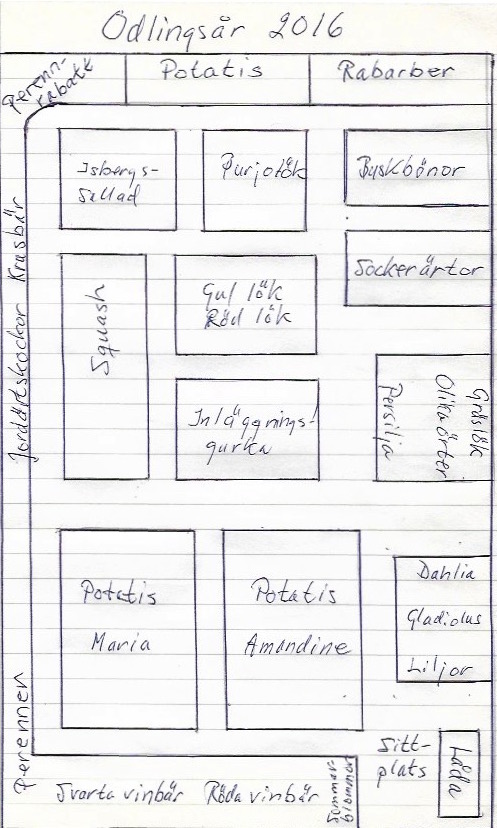 Odlingsår 2016
Perenn-
rabatt
Potatis
Rabarber
Isbergs-
sallad
Purjolök
Buskbönor
Jordärtskockor Krusbär
Squash
Gul lök
Röd lök
Sockerärtor
Inläggnings-
gurka
Persilja
Olika örter
Gräslök
Potatis
Maria
Potatis
Amandine
Dahlia
Gladiolus
Liljor
Perenner
Svarta vinbär
Röda vinbär
Sommar-
blommor
Sitt-
plats
Låda